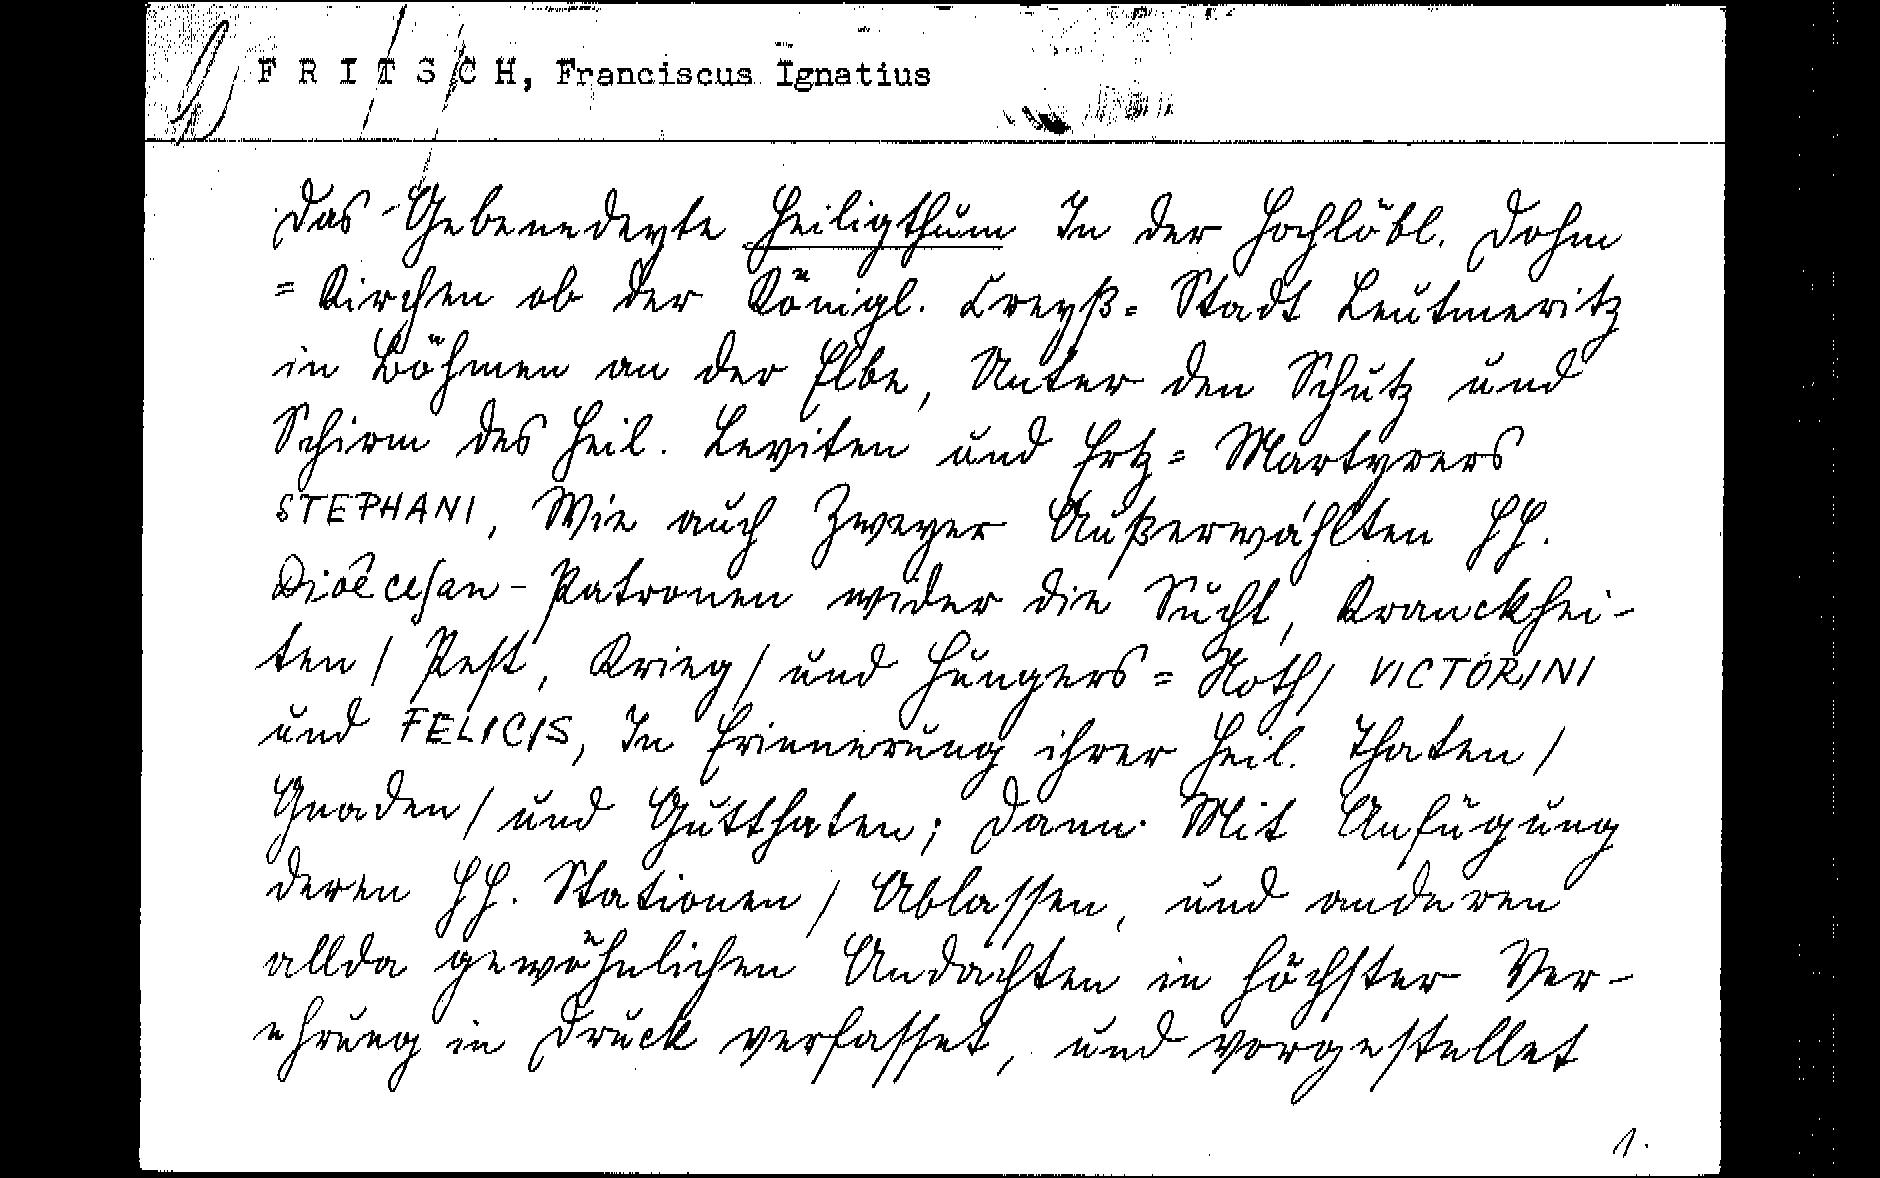 F R I T S C H, Franciscus Ignatius
Das Gebenedeyte Heiligthum In der Hochlöbl. Dohm
= Kirchen ob der Königl. Creyß= Stadt Leutmeritz
in Böhmen an der Elbe, Unter den Schutz und
Schirm des Heil. Leviten und Ertz= Martyrers
STEPHANI, Wie auch Zweyer Außerwählten HH.
Dioecesan-Patronen wider die Sucht, Kranckhei-
ten / Pest, Krieg / und Hungers= Noth / VICTORINI
und FELICIS, In Erinnerung ihrer Heil. Thaten /
Gnaden / und Gutthaten; Dann Mit Anfügung
deren HH. Stationen / Ablassen, und anderen
allda gewöhnlichen Andachten in höchster Ver-
ehrung in Druck verfasset, und vorgestellet
1.